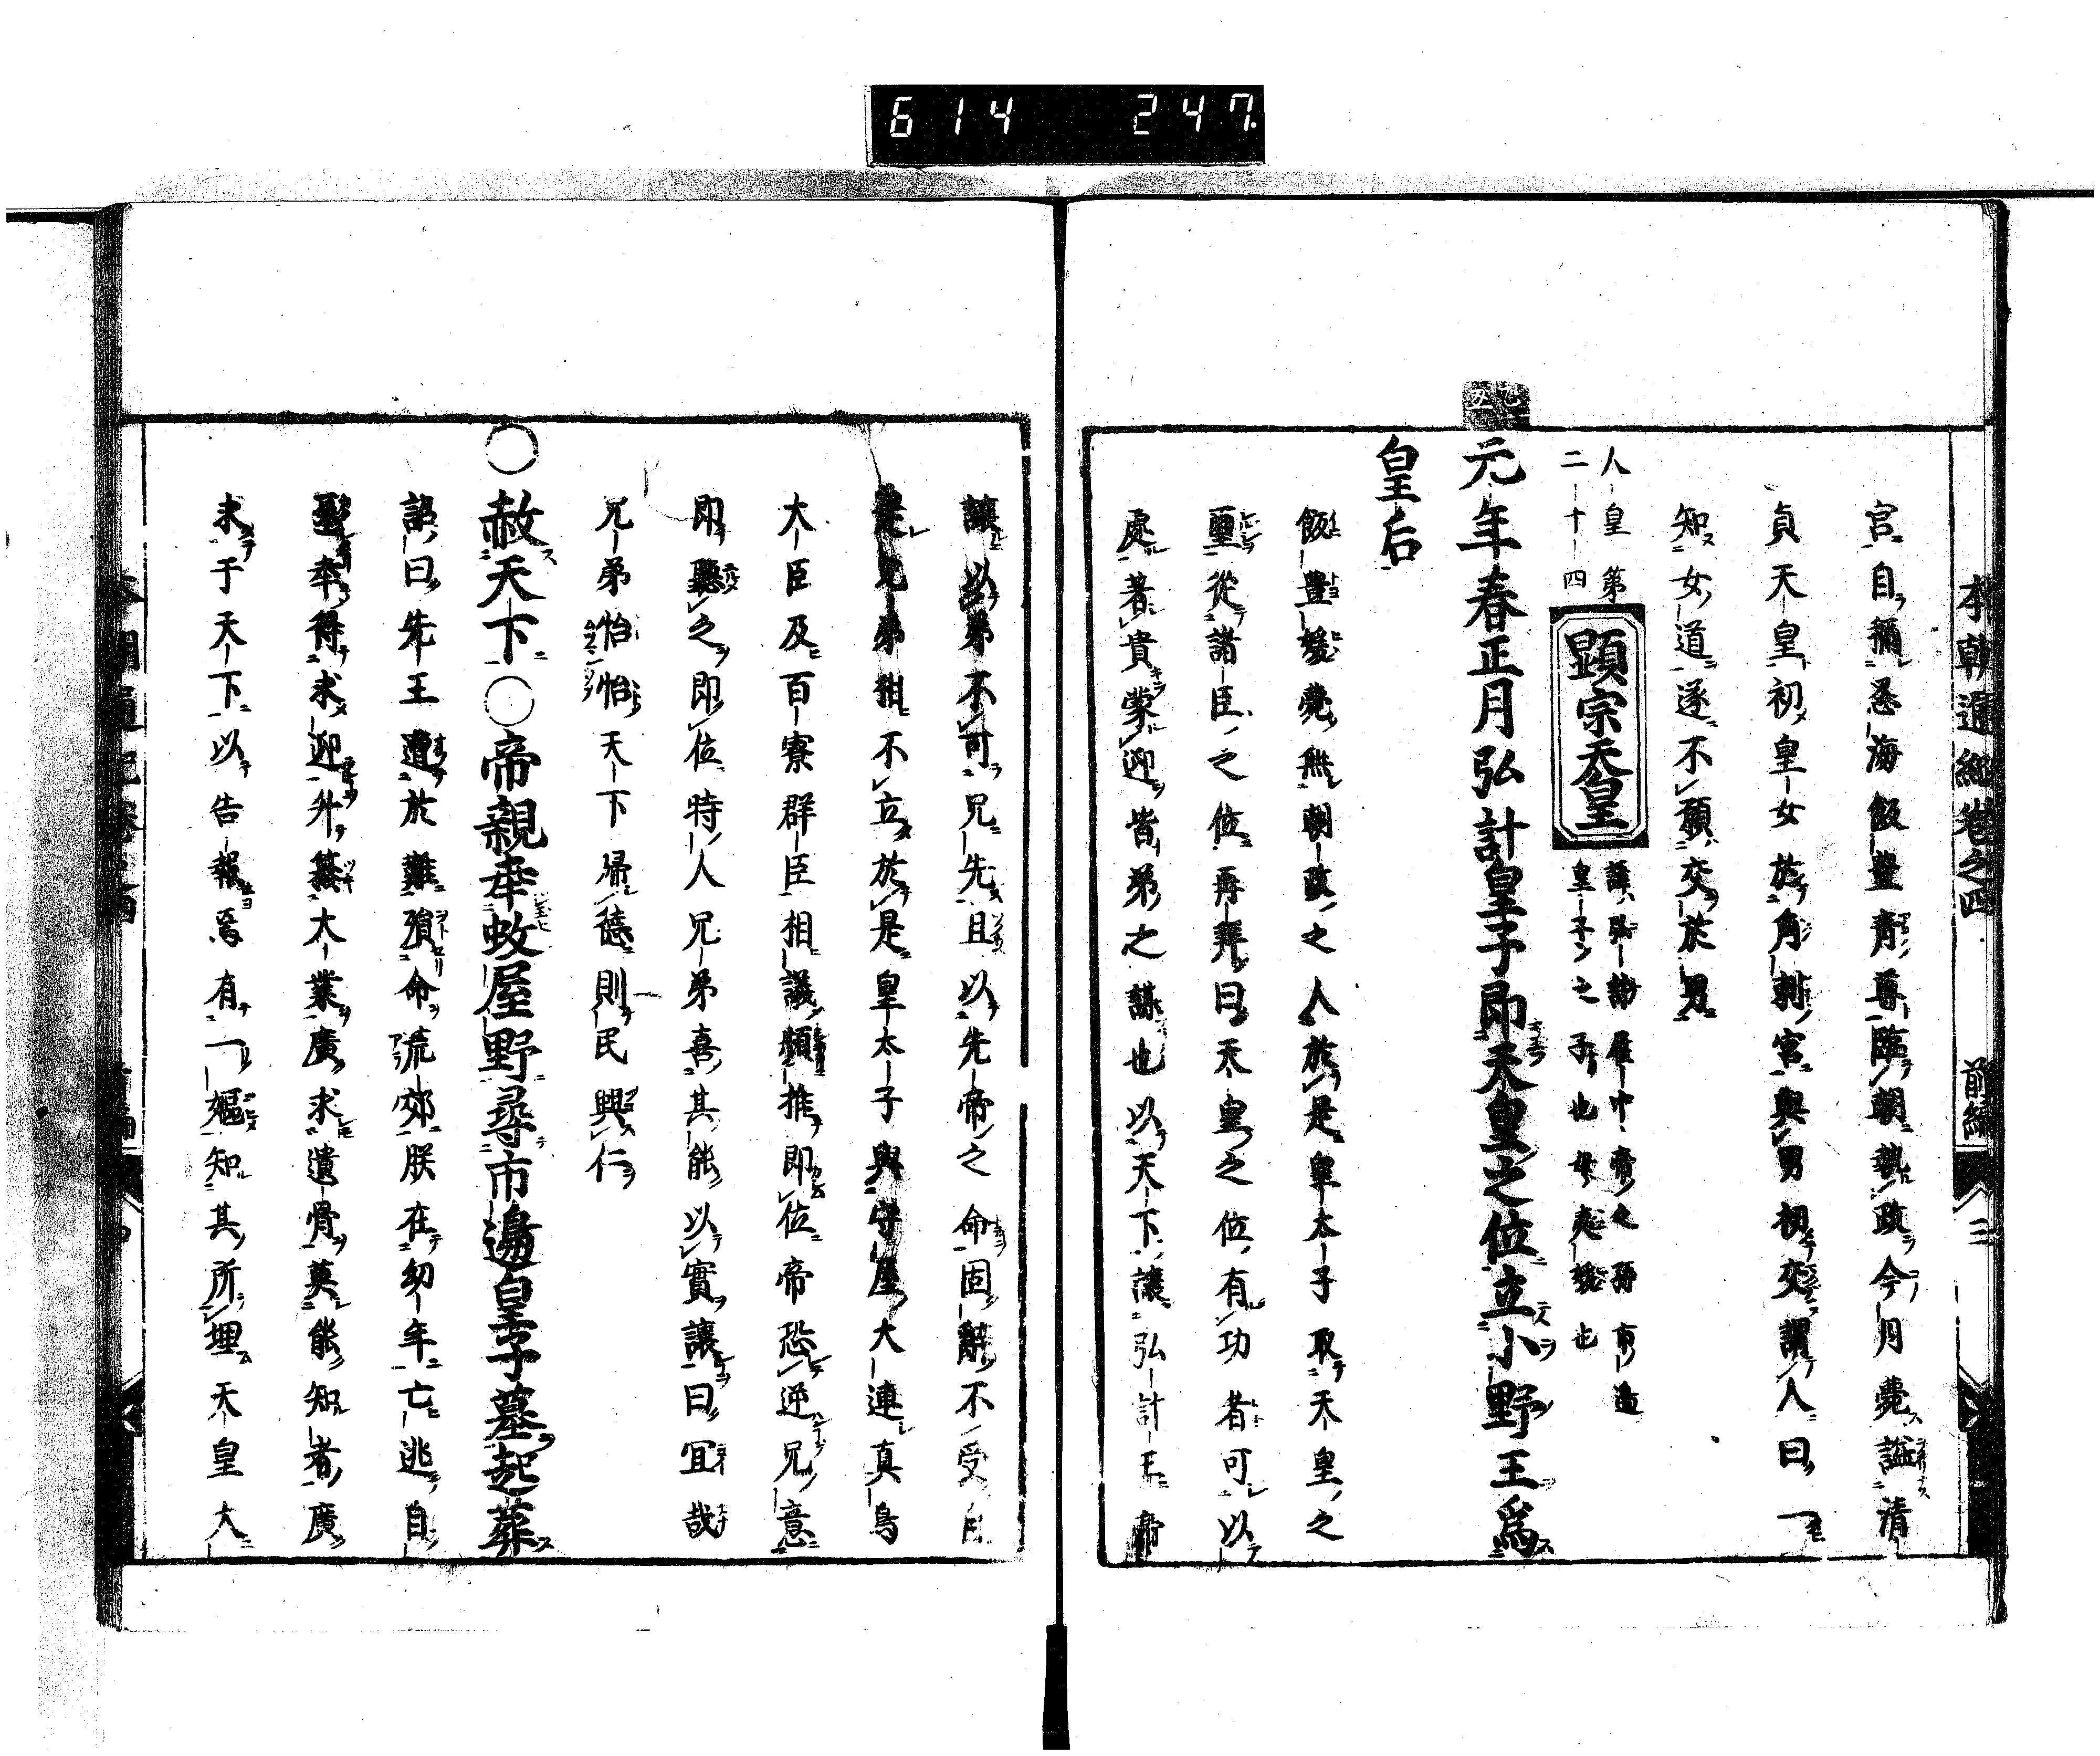 614 247
本朝通紀卷之四 前編 三
宮自稱忍海飯豐青尊臨朝執政今月薨諡清
貞天皇初皇女於角刺宮與男初交謂人曰一
知女道遂不願交於男
人皇第
二十四
顕宗天皇
諱弘計履中帝之孫市邊
皇子之子也母荑媛也
元年春正月弘計皇子即天皇之位立小野王爲
皇后
飯豊媛薨無朝政之人於是皇太子取天皇之
璽從諸臣之位再拜曰天皇之位有功者可以
處著貴蒙迎皆弟之謀也以天下讓弘計王帝
讓以弟不可兄先且以先帝之命固辭不受
是兄弟相不立於是皇太子與守屋大連真鳥
大臣及百寮群臣相議頻推即位帝恐逆兄意
即聽之即位特人兄弟喜其能以實讓曰宜哉
兄弟怡怡天下歸德則民興仁
○赦天下○帝親幸蚊屋野尋市邊皇子墓起葬
詔曰先王遭於難殞命荒郊朕在幼年亡逃自
匿牽得求迎升纂大業廣求遺骨莫能知者廣
求于天下以告報焉有一嫗知其所埋天皇大